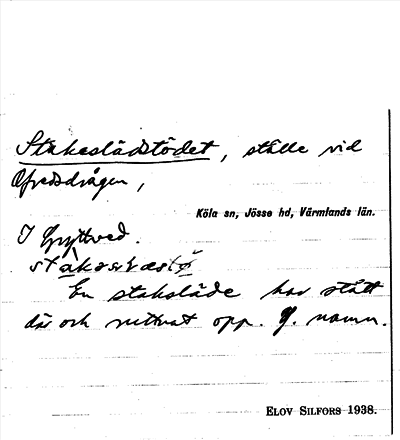 Stakeslädstödet, ställe vid
Ofredsdrågen,
Köla sn, Jösse hd, Värmlands län.
I Gryttved.
En stakslade har stått
där och ruttnat opp. G. namn.
ELOV SILFORS 1938.